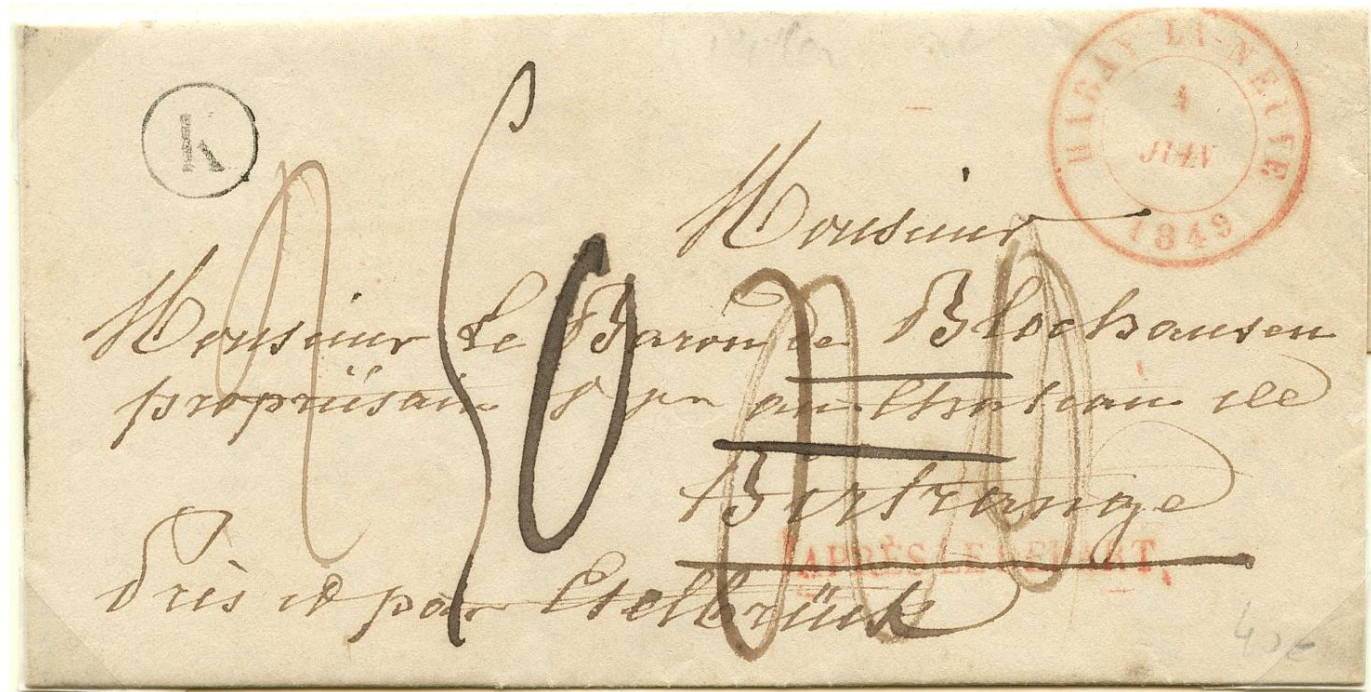 k
HABAY-LA-NEUVE
4
JUIN
1849
Monsieur
Monsieur Le Baron de Blochausen
propriétaire au Chateau de
Birtrange
APRÈS LE DÉPART
Près et par Etelbrück